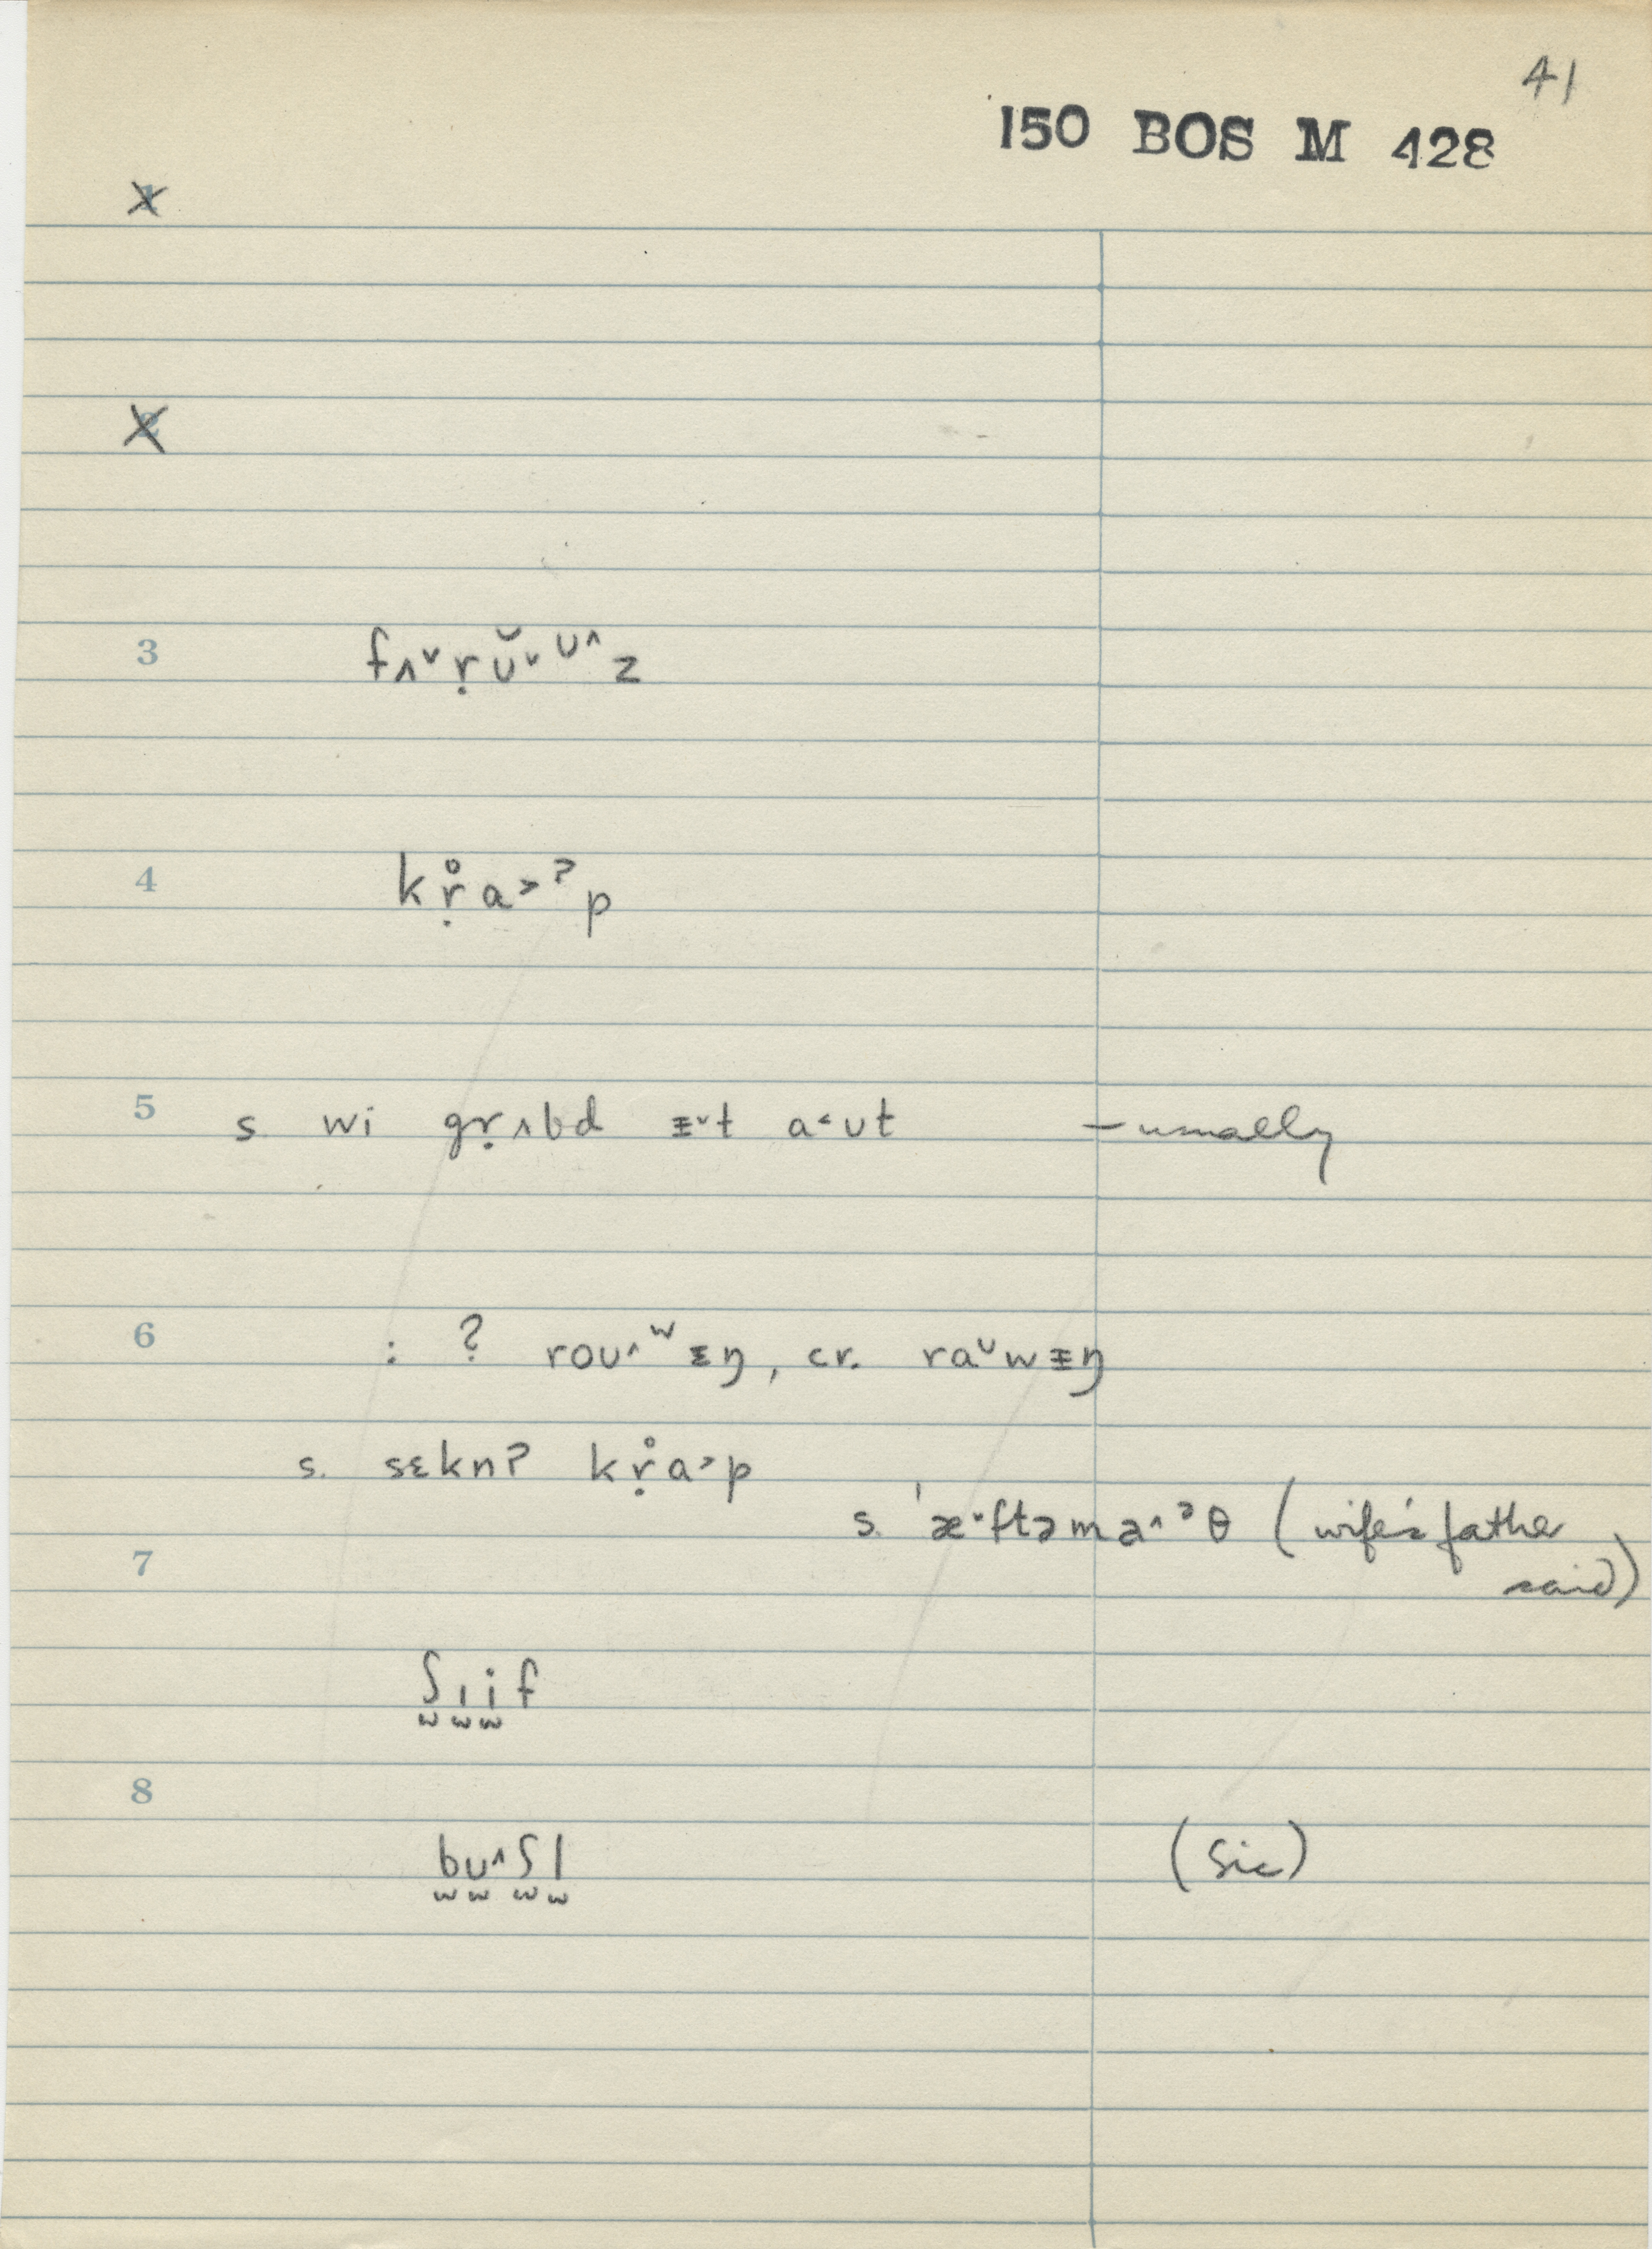 41
150 BOS M 428
1
2
3 fʌ˅ṛʊ̆˅ᶷ˄z
4 kṛ̊a˃ˀp
5 s. wi gṛʌbd ᵻ˅t a˂ʊt – usually
6 : ? roʊ˄ʷᵻŋ, cr. raᶷwᵻŋ
s. sɛkn? kṛ̊a˃p
s. ˈæ˅ftəma˄ᵊθ (wife's father
7 said)
ʃɪif
8
bʊ˄ʃl (sic)